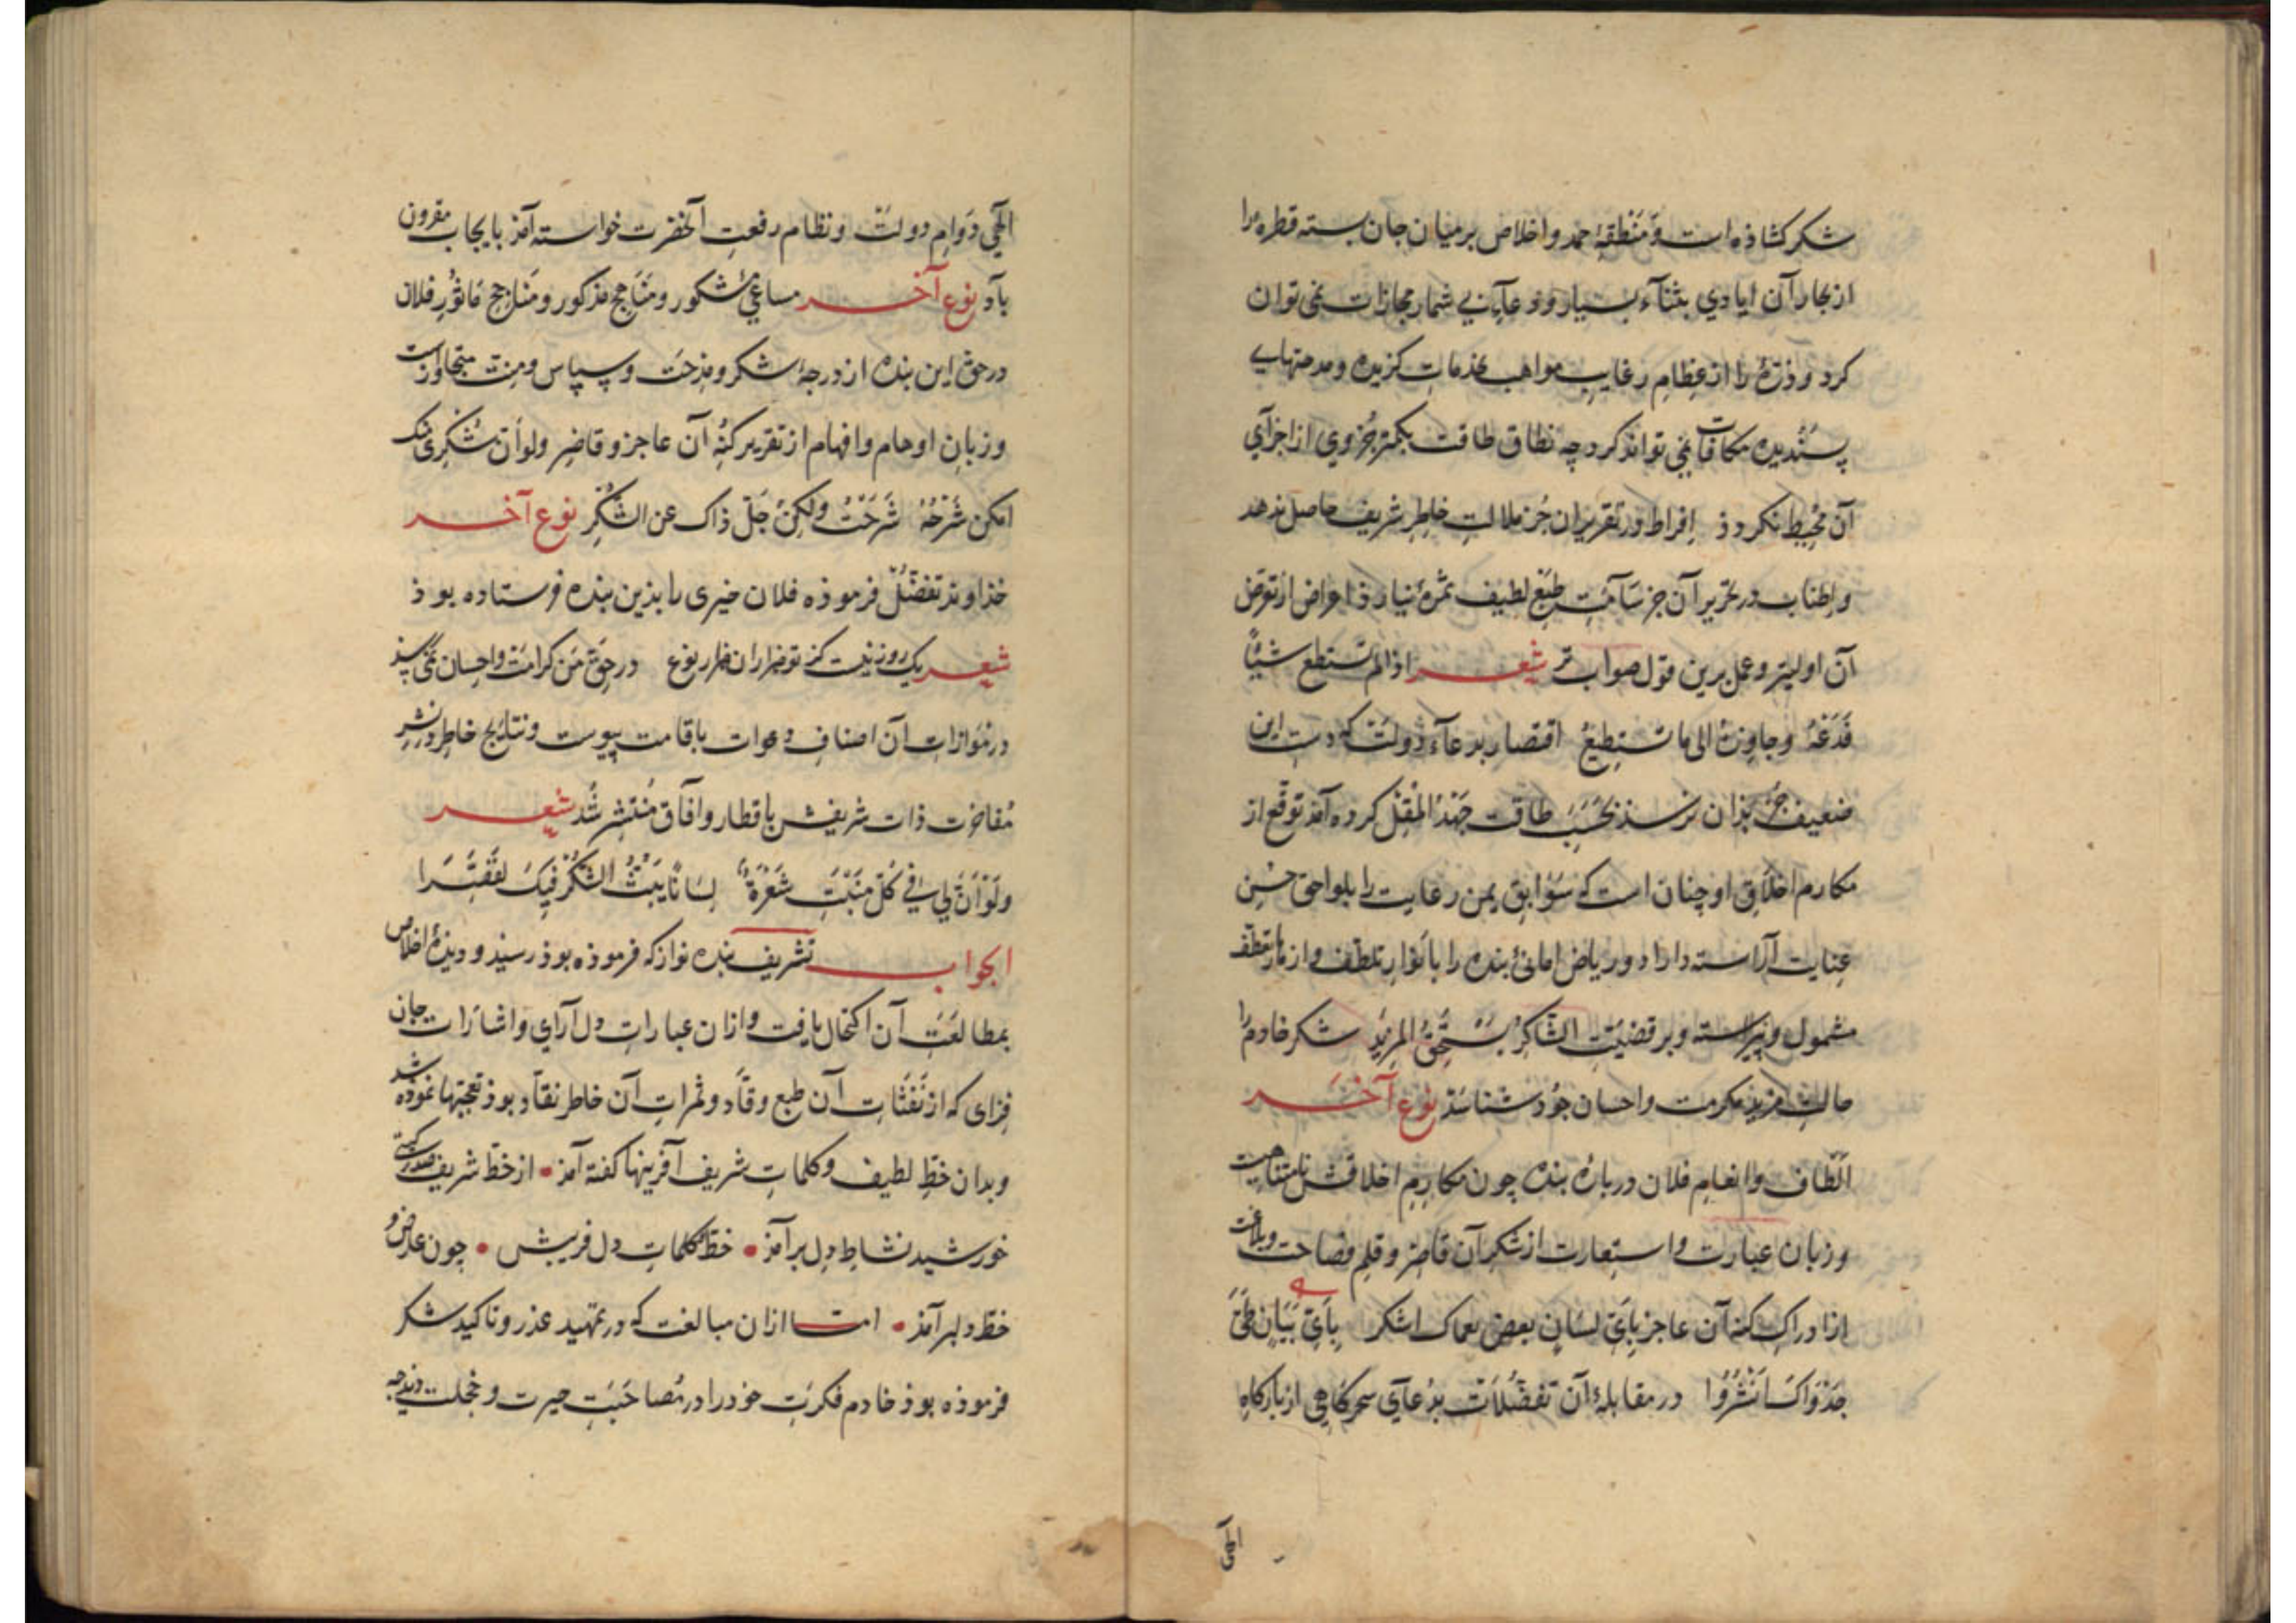 شکر کشاذه است و مَنْطَقِهٔ حمد و اخلاص بر میان جان بسته قطرهٔ را
از بحار آن ایادي بثنآء بسیار و دعآي بي شمار مجازات نمي توان
کرد و ذرّهٔ را از عِظامِ رغایبِ مواهب بخدماتِ کزیده و مدحتهاي
پسندیده مکافات نمي تواند کرد چه نطاق طاقت بکمتر جُزوي از اجزآي
آن مُحیط نکردد ذ اِفراط در تقریر ان جُز ملالتِ خاطِرِ شریف حاصل ندهد
و اِطناب در تحریر آن جز سَآمَتِ طبَعِ لطیف ثمرهٔ نیارذ اعراض از تعرّض
آن اولیتر و عمل برین قول صواب تر شعر اذا لم تستطع شیئاً
فَدَعْهُ وجاوِزهُ الی ما تستطیعُ اقتصار بدعآء دولت که دستِ این
ضعیف جُز بذان نرسذ بحَسَبِ طاقت جَهْدُ الْمُقِلّ کرده آمذ توقّع از
مکارم اخلاقِ او چنان است که سَوابقِ یمن رعایت را بلواحق حُسْنِ
عِنایت آراسته دارد و ریاض امانیٔ بنده را بانوارِ تلطّف و ازهارِ تعطّف
مشمول و پیراسته و بر قضیّتِ الشّاکِرُ یَسْتَحِقُّ المزیدَ شکر خادم را
جالبِ مزیذ مکرمت و احسان جوُذ شناسَذ نوع آخَر
الْطاف و اِنعامِ فلان دربارهٔ بنده چون مکارمِ اخلاقش نامتناهیست
و زبان عبارت و استعارت از شکرِ آن قاصر و قلمِ فصاحت و بلاغت
از ادراکِ کنه آن عاجز بِایّ لسانٍ بعضَ نعماک اشکر بِاَيّ بَیَانٍ طَيَّ
جَدْوَاکَ اَنْشُرُ در مقابلهٔ آن تفضُّلات بدُعآي سحرکاهي از بارکاهِ
الهي
الٓهي دَوامِ دولت و نظام رفعتِ آنحضرت خواسته آمذ بایجاب مقرون
باد نوع آخر مساعيِ مشکور و مَناهِج مذکور و مَنارِحجِ مَاثُورِ فلان
در حقِّ این بنده از درجهٔ شکر و مِذحَت و سپاس و مِنت متجاوز است
و زبانِ اوهام و افهام از تقریر کُنْهِ آن عاجز و قاصِر ولو أنّ شُکرِی مِنْکَ
امکن شَرْحُهُ شَرَحْتُ ولکنْ جَلَّ ذاک عن الشُّکْرِ نوع آخر
خذاوند تفضُّل فرموذه فلان خیری را بذین بنده فرستاده بوذ
شعر یک روز نیست کز تو هزاران هزار نوع در حقِّ من کرامت و احسان نمي رسذ
در مُوازاتِ آن اصنافِ دعوات باقامت پیوست و نتایج خاطِر در نشرِ
مُفاخرِت ذات شریفش باقطار و آفاق مُنتشِر شُد شعر
وَلَوْ اَنَّ لي في کُلّ مَنْبَتِ شَعْرَةٍ لِسَانًا یَبُثُّ الشُّکْرَ فِیکَ لقَصَّرَا
الجواب تشریف بنده نواز که فرموذه بوذ رسیذ و دیذهٔ اخلاص
بمطالعَتِ آن اکتحال یافت و ازان عباراتِ دل آراي و اشارات جان
فِزای که از نَفَثَاتِ آن طبع وقّاد و ثمراتِ آن خاطر نقّاد بوذ تعجّبها نموذه شذ
و بدان خطِّ لطیف و کلماتِ شریف آفرینها کفته آمذ • از خطّ شریف صدر کیتي
خورشید نشاطِ دل برآمذ • خطِّ کلماتِ دل فریبش • چون عارض و
خطِّ دلبر آمذ • امّا ازان مبالغت که در تمهید عذر و تاکید شکر
فرموذه بوذ خادم فکرتِ خود را در مُصاحَبَتِ حیرت و خجلت دید چه